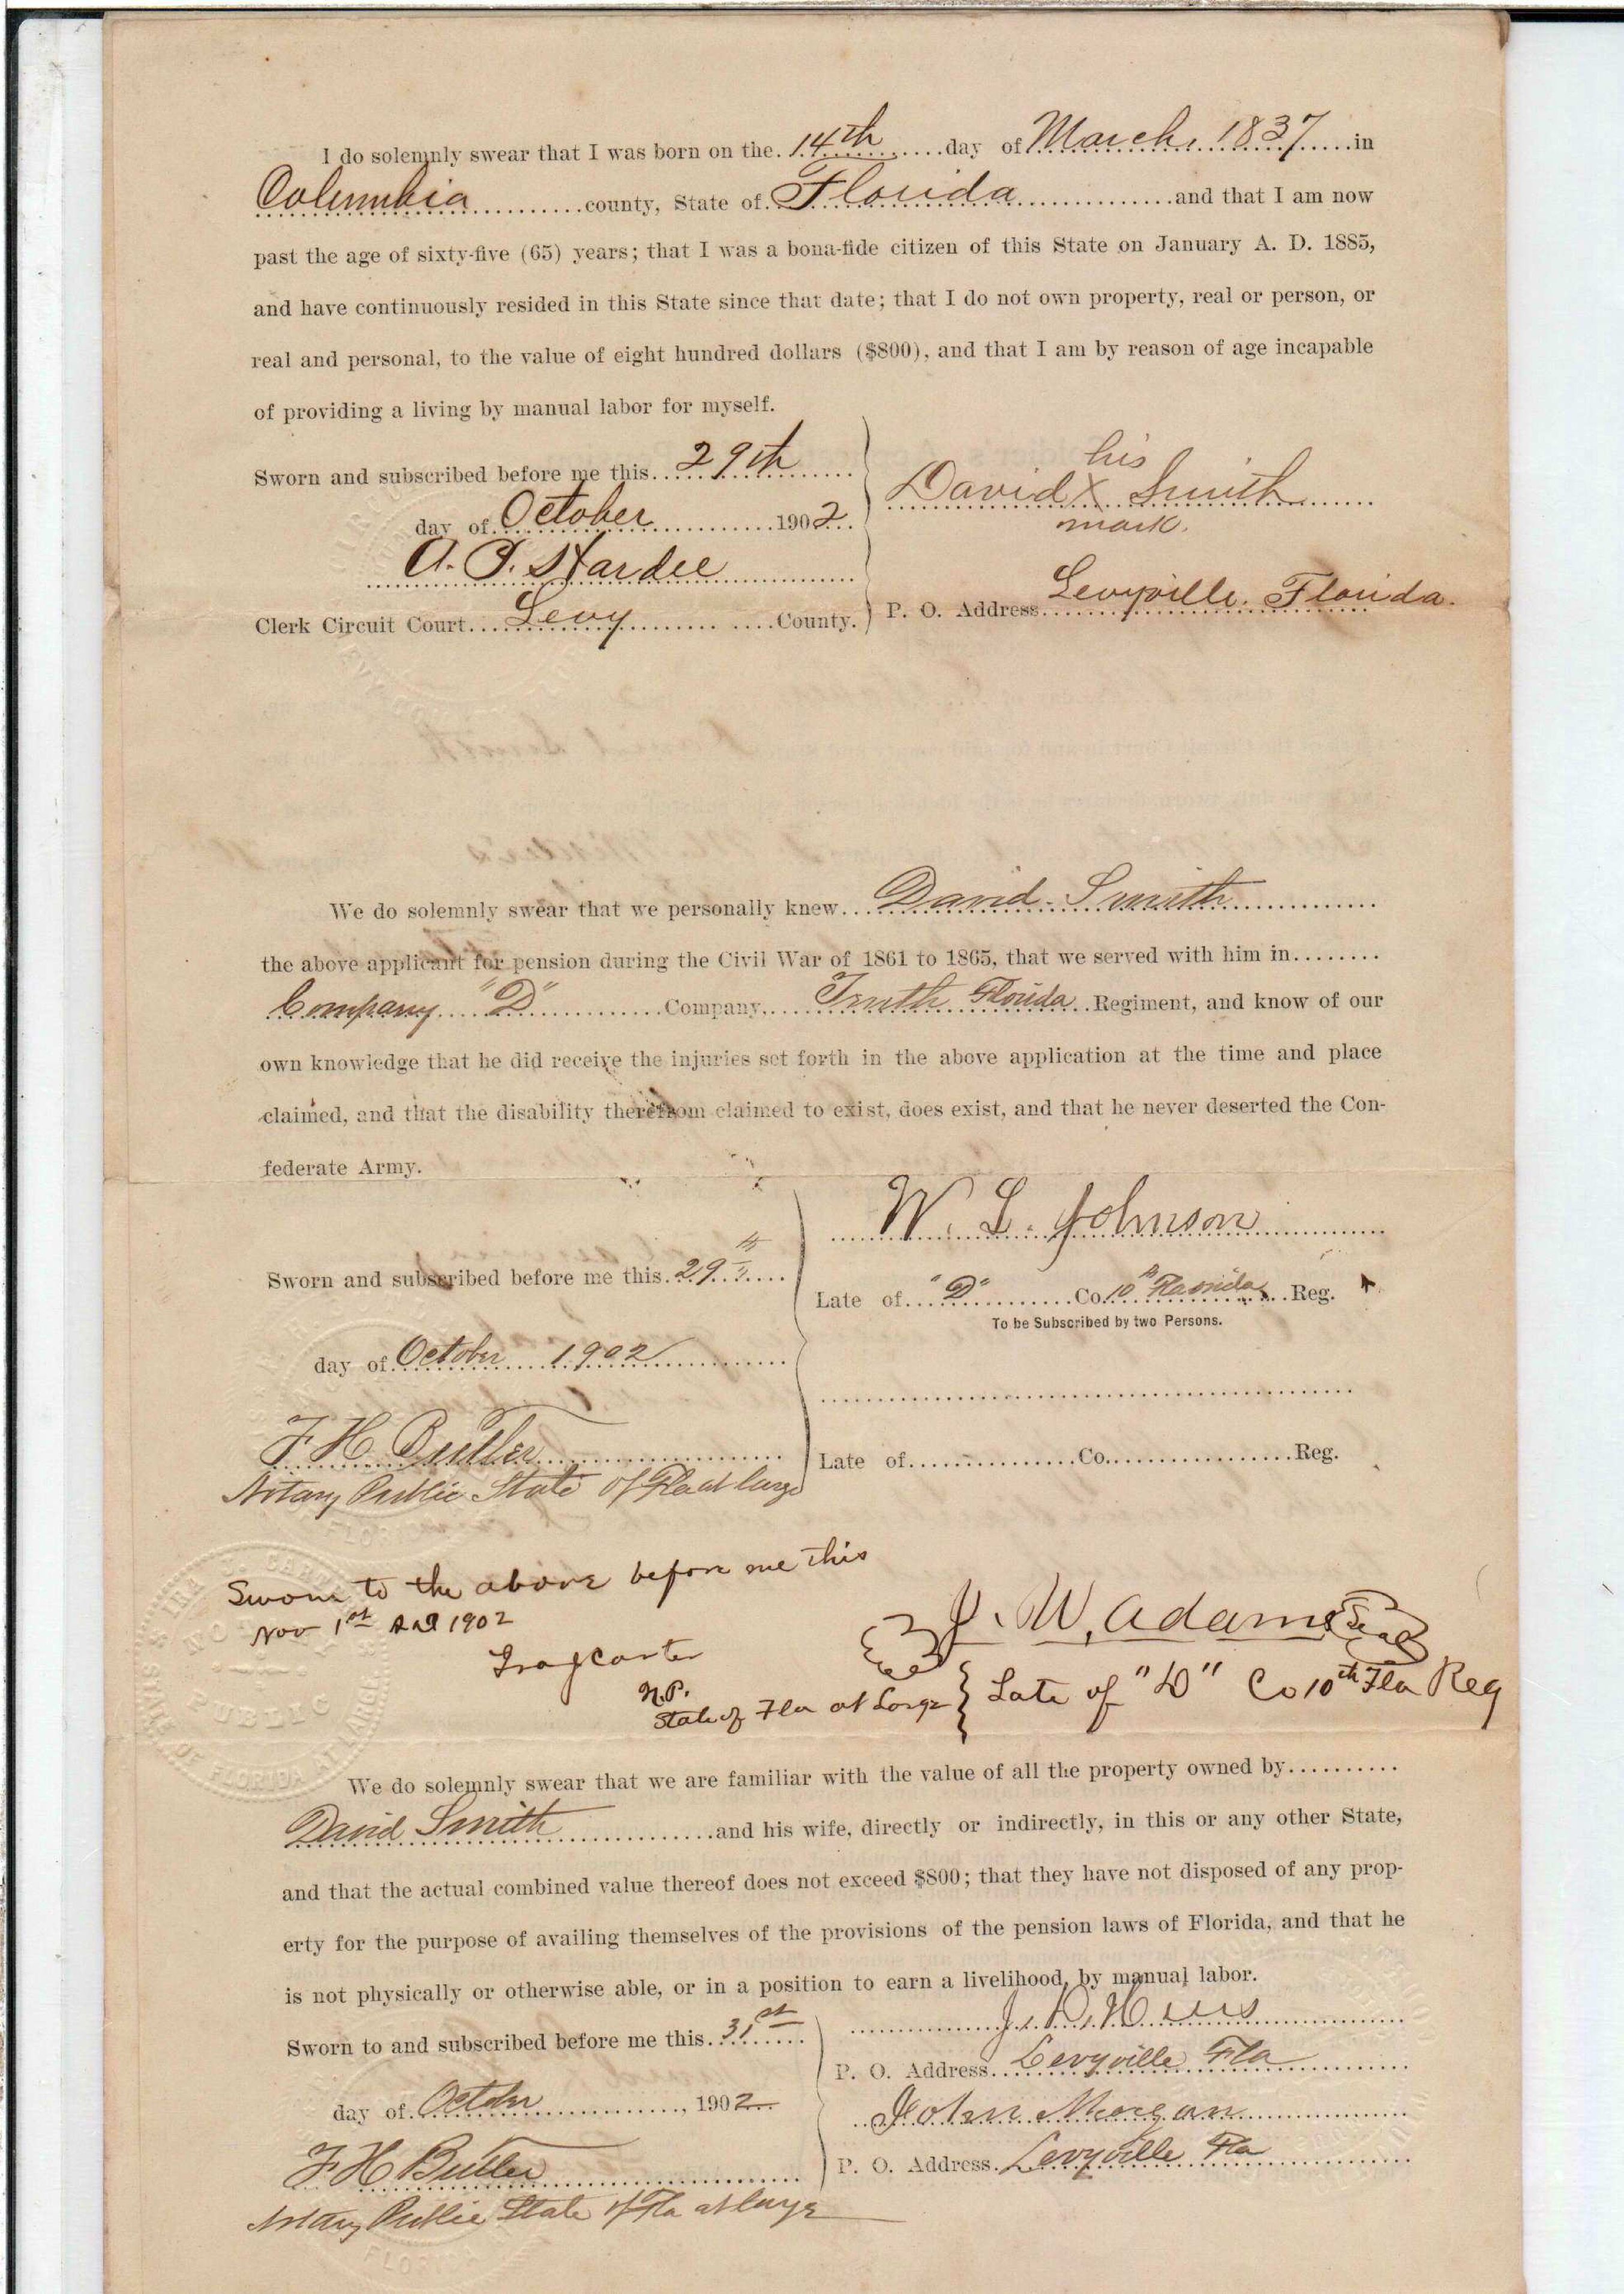 I do solemnly swear that I was born on the 14th day of March, 1837 in
Columbia county, State of Florida and that I am now
past the age of sixty-five (65) years; that I was a bona-fide citizen of this State on January A. D. 1885,
and have continuously resided in this State since that date; that I do not own property, real or person, or
real and personal, to the value of eight hundred dollars ($800), and that I am by reason of age incapable
of providing a living by manual labor for myself.
Sworn and subscribed before me this 29th
day of October 1902
A. S. Hardee
Clerk Circuit Court Levy County.
his
David X Smith
mark.
P. O. Address Levyville. Florida.
We do solemnly swear that we personally knew David Smith
the above applicant for pension during the Civil War of 1861 to 1865, that we served with him in
Company "D" Company, Tenth Florida Regiment, and know of our
own knowledge that he did receive the injuries set forth in the above application at the time and place
claimed, and that the disability therefrom claimed to exist, does exist, and that he never deserted the Con-
federate Army.
Sworn and subscribed before me this 29th
day of October 1902
F. H. Butler
Notary Public State of Fla at large
W. L. Johnson
Late of "D" Co. 10th Florida Reg.
To be Subscribed by two Persons.
Late of Co. Reg.
Sworn to the above before me this
Nov 1st 1902
Ira J Carter
N.P.
State of Fla at Large
J. W. Adams Seal
Late of "D" Co 10th Fla Reg
IRA J. CARTER
NOTARY PUBLIC
STATE OF FLORIDA AT LARGE
We do solemnly swear that we are familiar with the value of all the property owned by
David Smith and his wife, directly or indirectly, in this or any other State,
and that the actual combined value thereof does not exceed $800; that they have not disposed of any prop-
erty for the purpose of availing themselves of the provisions of the pension laws of Florida, and that he
is not physically or otherwise able, or in a position to earn a livelihood, by manual labor.
Sworn to and subscribed before me this 31st
day of October, 1902
F H Butler
Notary Public State of Fla at large
P. O. Address Levyville Fla
John Morgan
P. O. Address Levyville Fla